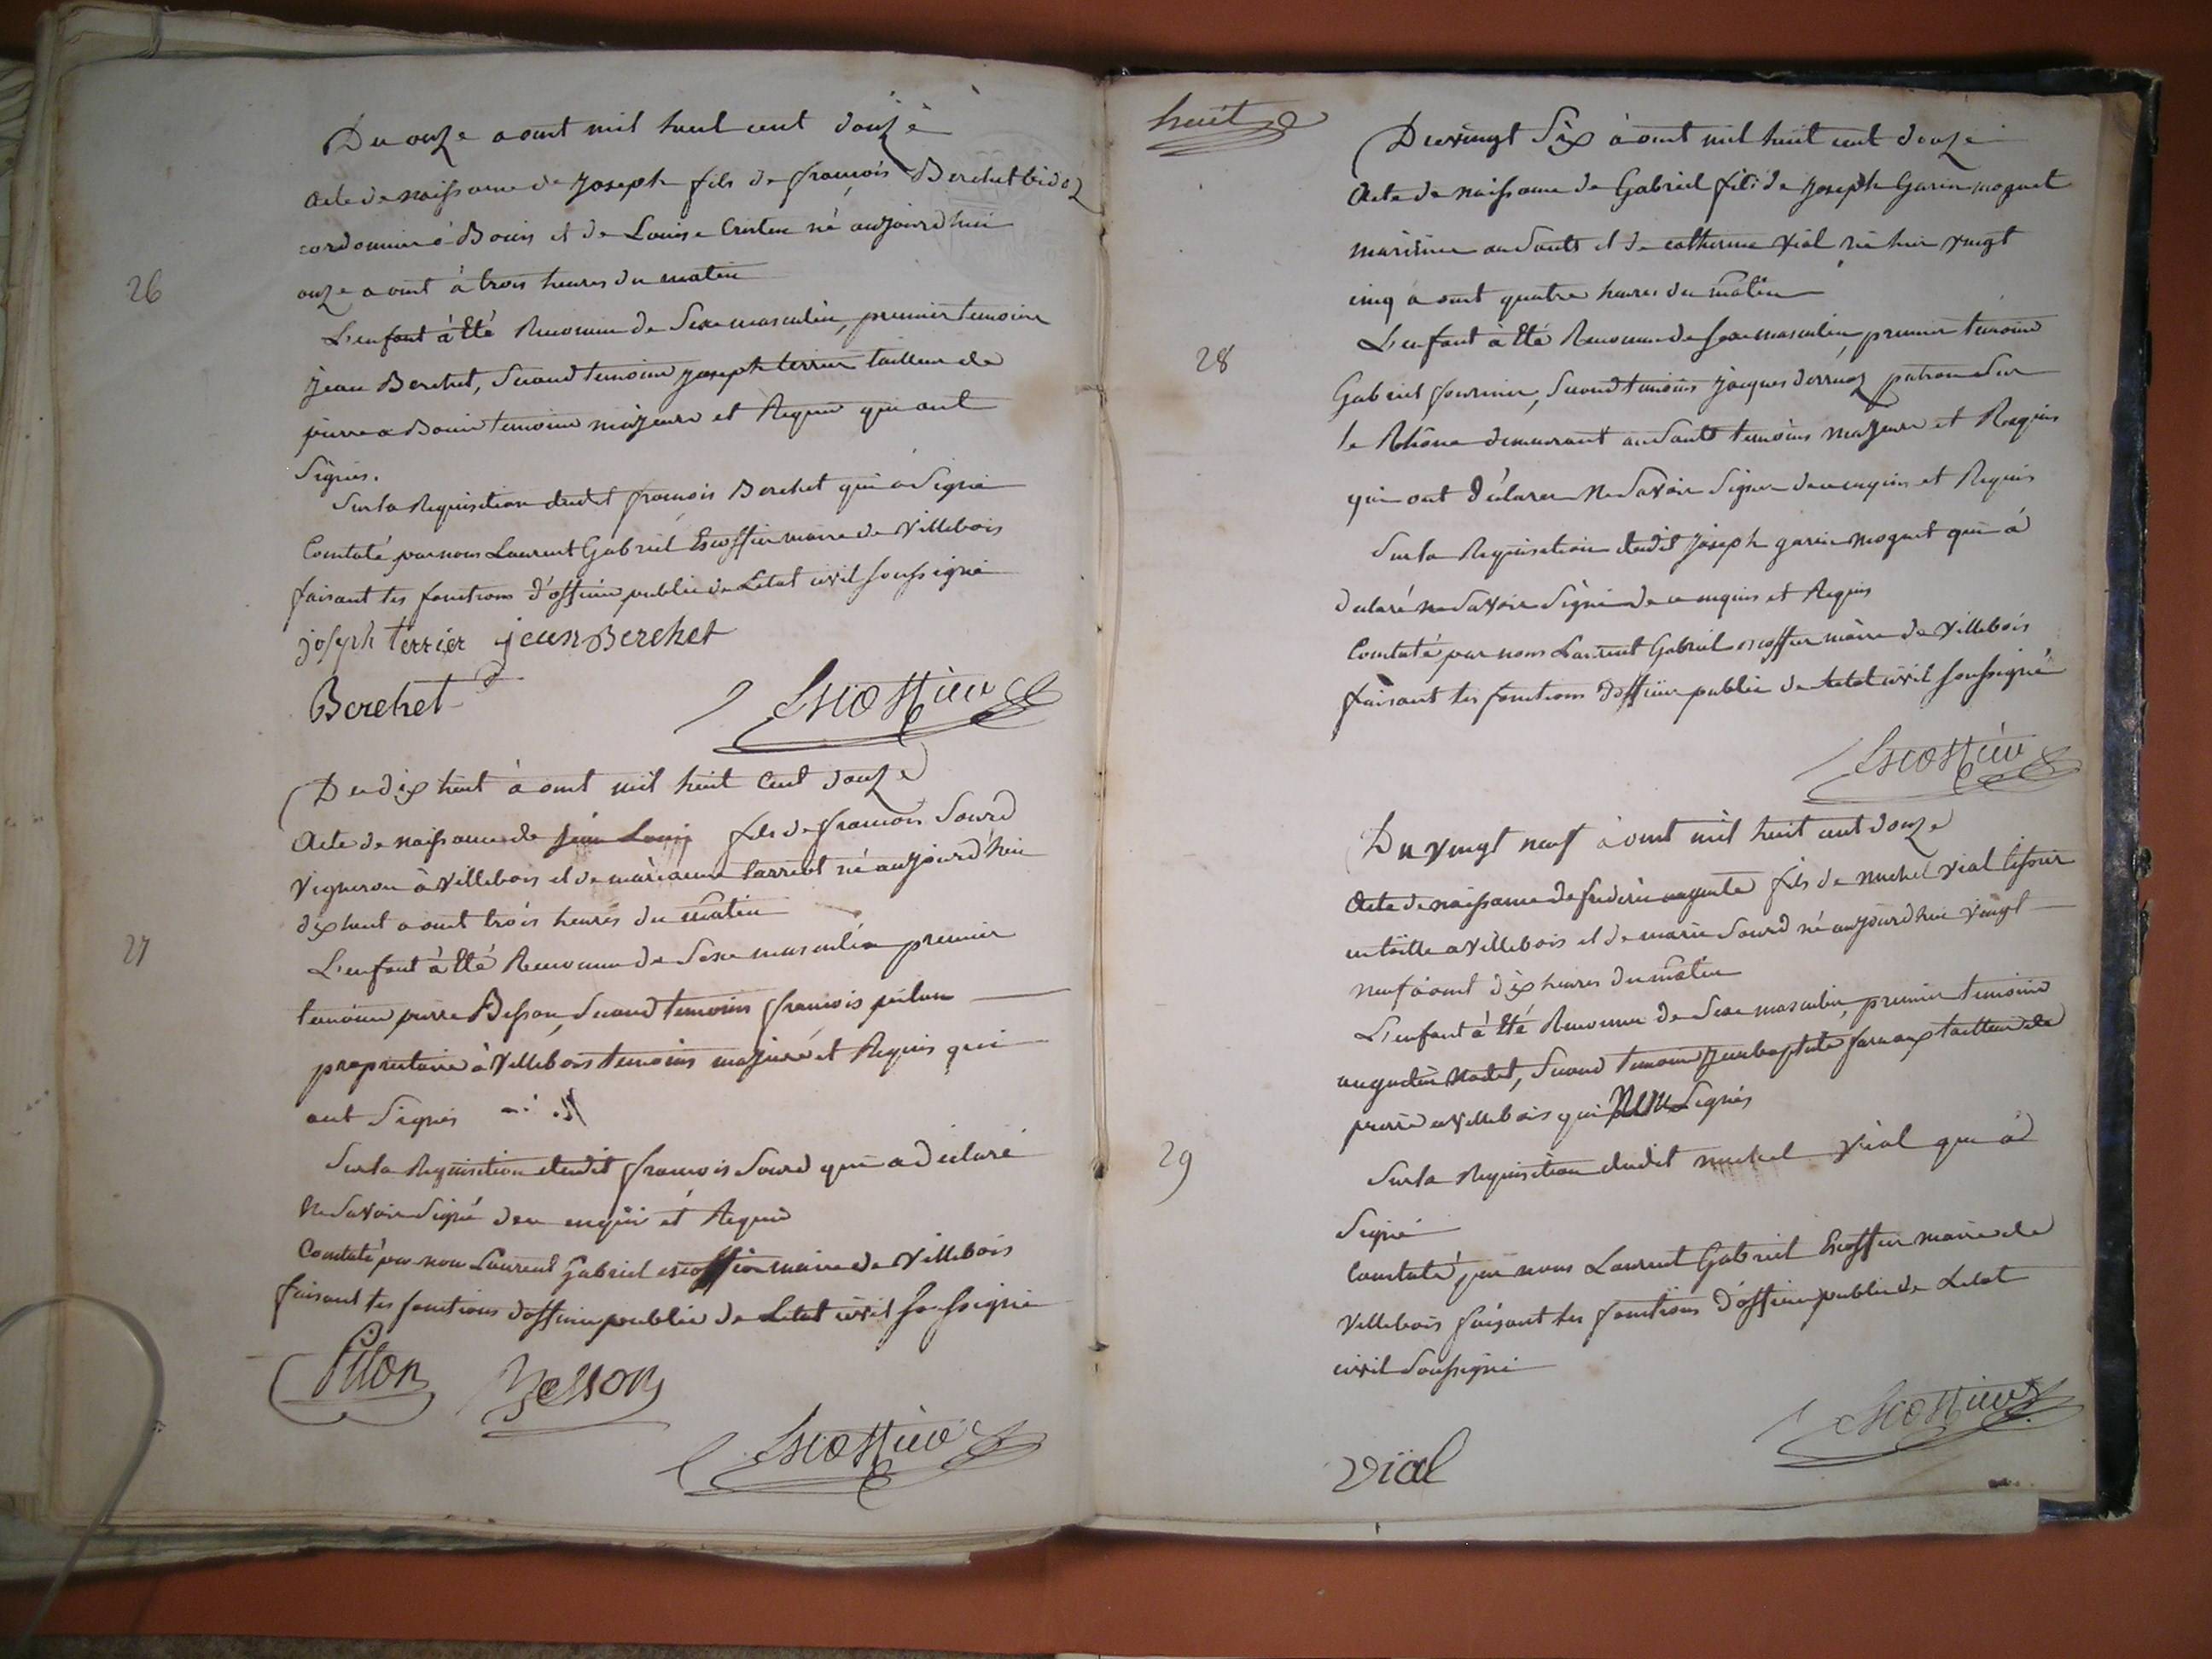 Du onze aout mil huit cent douze
acte de naissance de Joseph fils de françois Berchet bidoz
cordonnier à Bouis et de Louise né aujourdhui
onze aout à trois heures du matin
26
L'enfant à été Reconnu de Sexe masculin, premier temoin
Jean Berchet, Second temoin Joseph terrier tailleur de
pierre a Bouis temoins majeurs et Requis qui ont
Signés.
Sur la Requisition dudit françois Berchet qui a Signé
Constaté par nous Laurent Gabriel Escoffier maire de Villebois
faisant les fonctions d'officier public de Letat civil soussigné
joseph terrier jean Berchet
Berchet Escoffier
Du dix huit à out mil huit Cent douze
Acte de naissance de Jean Louis fils de françois Sourd
Vigneron à Villebois et de marianne né aujourd'hui
dix huit aout trois heures du matin
27
L'enfant à été Reconnu de Sexe masculin premier
temoin pierre Besson, Second temoins françois pilon
proprietaire à Villebois temoins majeurs et Requis qui
ont Signés
Sur la Requisition dudit françois Sourd qui a déclaré
Ne Savoir Signé de ce enquis et Requis
Constaté par nou Laurent Gabriel escoffier maire de Villebois
faisant les fonctions dofficier public de Letat civil soussigné
Pilon Besson
Escoffier
huit
Du vingt Six à out mil huit cent douze
Acte de naissance de Gabriel fils de Joseph Garin moguet
marinier au Sault et de catherine Vial né hier vingt
cinq à out quatre heures du matin
L'enfant à été Reconnu de sexe masculin, premier temoins
28
Gabriel fournier, Second temoins Jacques derruaz patron Sur
le Rhône demeurant au Sault temoins majeurs et Requis
qui ont déclarer Ne Savoir Signer de ce enquis et Requis
Sur la Requisition dudit Joseph garin moguet qui à
declaré ne Savoir Signé de ce enquis et Requis
Constaté par nous Laurent Gabriel escoffier maire de Villebois
faisant les fonctions dofficier public de letat civil soussigné
Escoffier
Du Vingt neuf à out mil huit cent douze
Acte de naissance de frederic auguste fils de michel Vial
en taille a Villebois et de marie Sourd né aujourdhui vingt
neuf à out dix heures du matin
L'enfant à été Reconnu de Sexe masculin, premier temoins
augustin Nodet, Second temoin Jean baptiste tailleur de
pierre a Villebois qui Signés
29
Sur la Requisition dudit michel Vial qui à
Signé
Constaté par nous Laurent Gabriel Escoffier maire de
Villebois faisant les fonctions d'officier public de Letat
civil Soussigné
Escoffier
vial